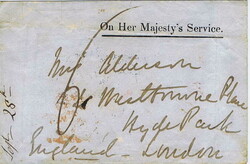 On Her Majesty's Service.
Mrs Alderson
Westbourne Place
Hyde Park
England London
Sept 28th